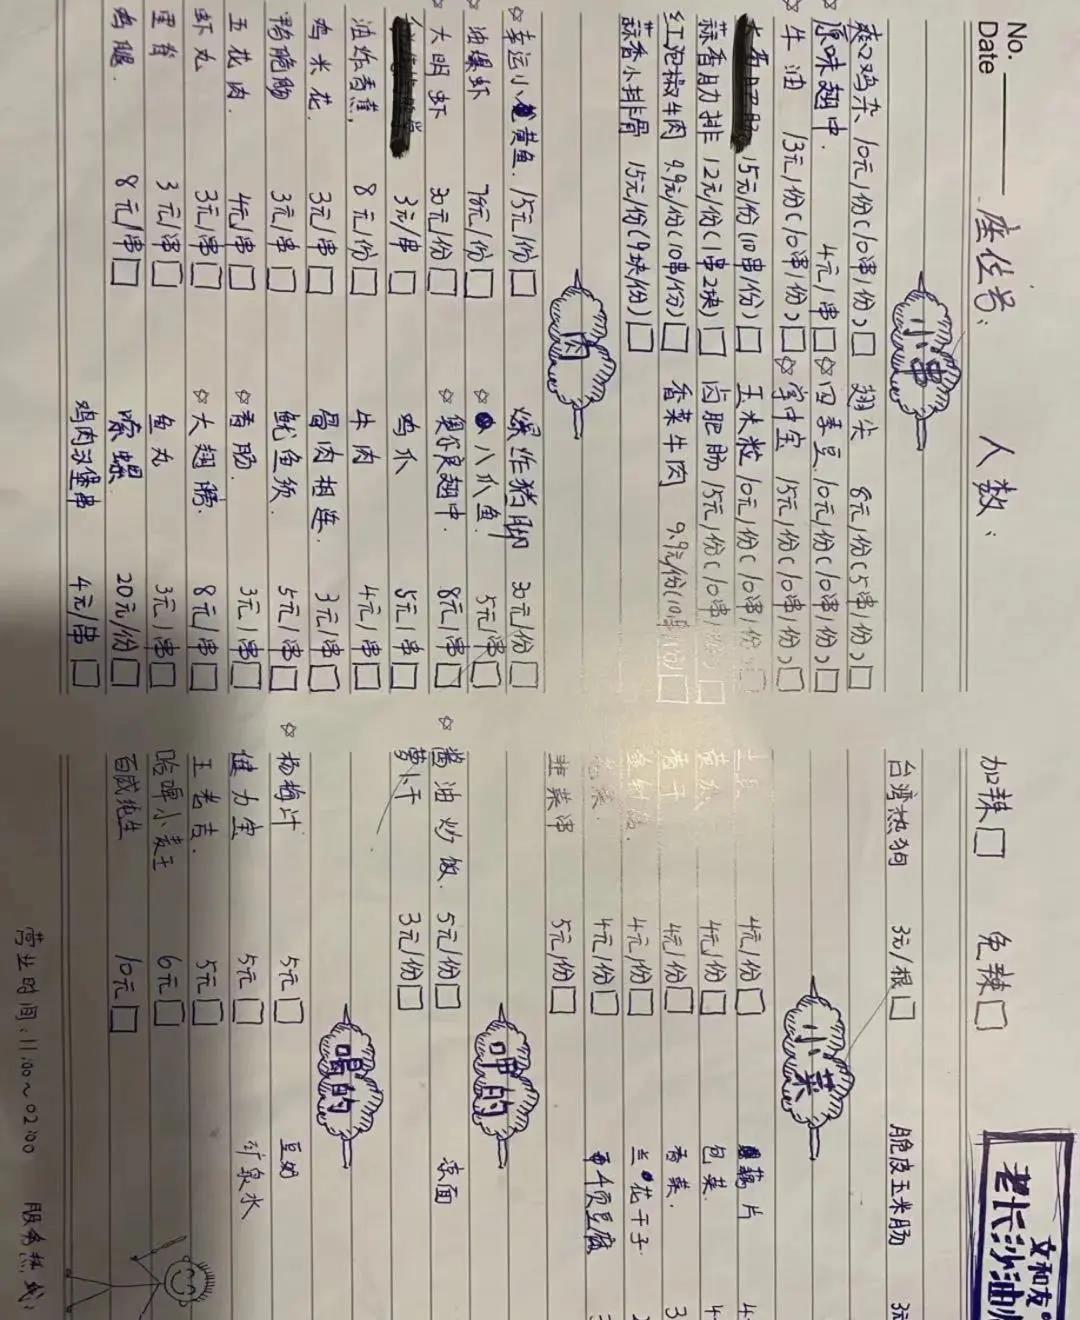 No.
Date
座位号:
人数:
加辣□
免辣□
文和友
老长沙油
台湾热狗 3元/根□
脆皮玉米肠 3元
小串
爽口鸡杂 10元/份(10串/份)□
翅尖 8元/份(5串/份)□
☆原味翅中. 4元/串□
☆四季豆 10元/份(10串/份)□
☆牛油 13元/份(10串/份)□
☆掌中宝 15元/份(10串/份)□
15元/份(10串/份)□
玉米粒 10元/份(10串/份)□
蒜香肋排 12元/份(1串2块)□
卤肥肠 15元/份(10串/份)□
红泡椒牛肉 9.9元/份(10串/份)□
香菜牛肉 9.9元/份(10串/份)□
蒜香小排骨 15元/份(9块/份)□
肉
☆幸运小黄鱼. 15元/份□
爆炸猪脚 30元/份□
☆油爆虾 78元/份□
☆八爪鱼. 5元/串□
☆大明虾 30元/份□
☆奥尔良翅中. 8元/串□
3元/串□
鸡爪 5元/串□
油炸香蕉, 8元/份□
牛肉 4元/串□
鸡米花. 3元/串□
骨肉相连. 3元/串□
鸭脆肠 3元/串□
鱿鱼须. 5元/串□
五花肉. 4元/串□
☆香肠. 3元/串□
虾丸 3元/串□
☆大翅膀. 8元/串□
里脊 3元/串□
鱼丸 3元/串□
鸡腿. 8元/串□
嗦螺. 20元/份□
鸡肉汉堡串 4元/串□
小菜
4元/份□
藕片 4
4元/份□
包菜. 4
4元/份□
香菜. 3
4元/份□
兰花干子.
4元/份□
千页豆腐
韭菜串 5元/份□
呷的
☆酱油炒饭. 5元/份□
凉面
萝卜干 3元/份□
喝的
☆杨梅汁 5元□
豆奶
健力宝 5元□
矿泉水
王老吉. 5元□
哈啤小麦王 6元□
百威纯生 10元□
营业时间:11:00~02:00 服务热线: